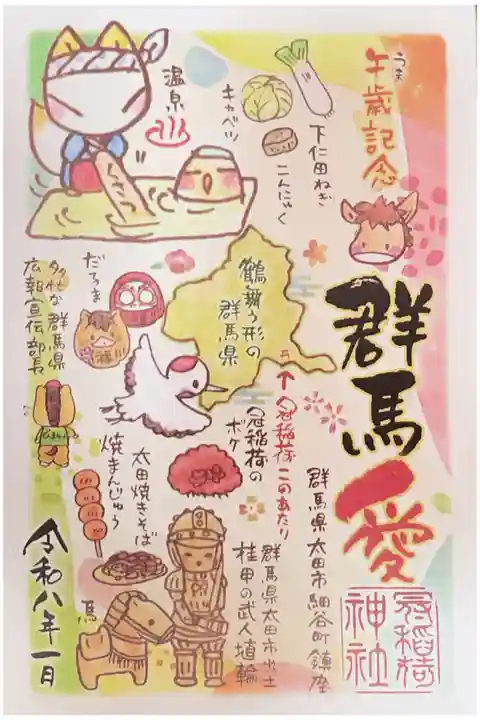 午歳記念
うま
群馬愛
冠稲荷
神社
下仁田ねぎ
キャベツ
こんにゃく
温泉
くさつ
鶴舞う形の
群馬県
↑冠稲荷このあたり
群馬県太田市細谷町鎮座
だるま
多忙な群馬県
広報宣伝部長
冠稲荷の
ボケ
太田焼きそば
焼まんじゅう
群馬県太田市出土
挂甲の武人埴輪
馬
令和八年一月